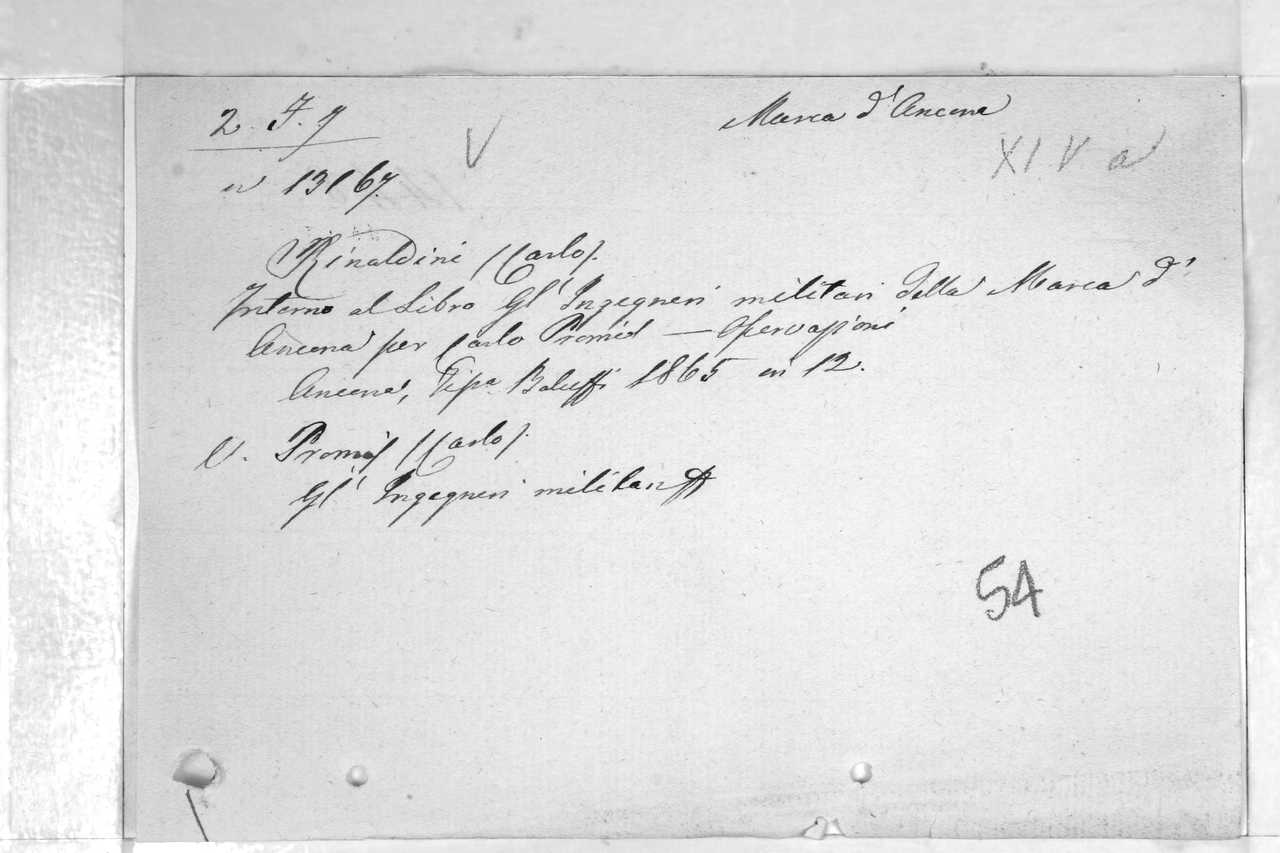 2. F. 9
Marca d'Ancona
V
XIV a
n 13167.
Rinaldini (Carlo).
Intorno al Libro Gl' Ingegneri militari della Marca d'
Ancona per Carlo Promis — Osservazioni
Ancona, Tipa Baluffi 1865 in 12.
V. Promis (Carlo).
Gl' Ingegneri militari
54